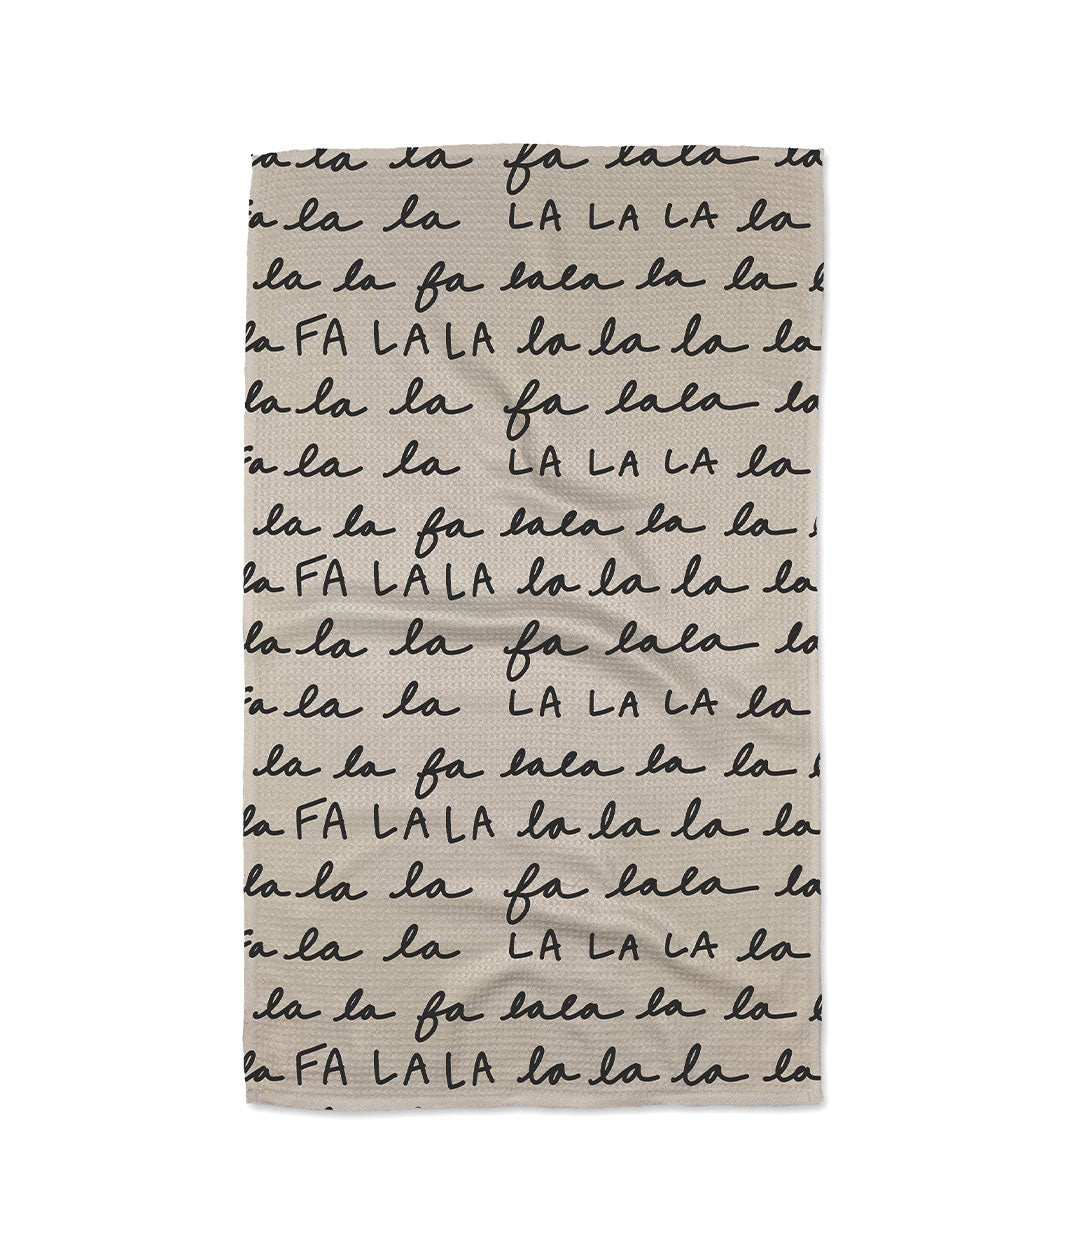 la la la fa lala la
fa la la LA LA LA la
la la fa lala la la
la FA LA LA la la la la
la la la fa lala la
fa la la LA LA LA la
la la fa lala la la
la FA LA LA la la la la
la la la fa lala la
fa la la LA LA LA la
la la fa lala la la
la FA LA LA la la la la
la la la fa lala la
fa la la LA LA LA la
la la fa lala la la
la FA LA LA la la la la